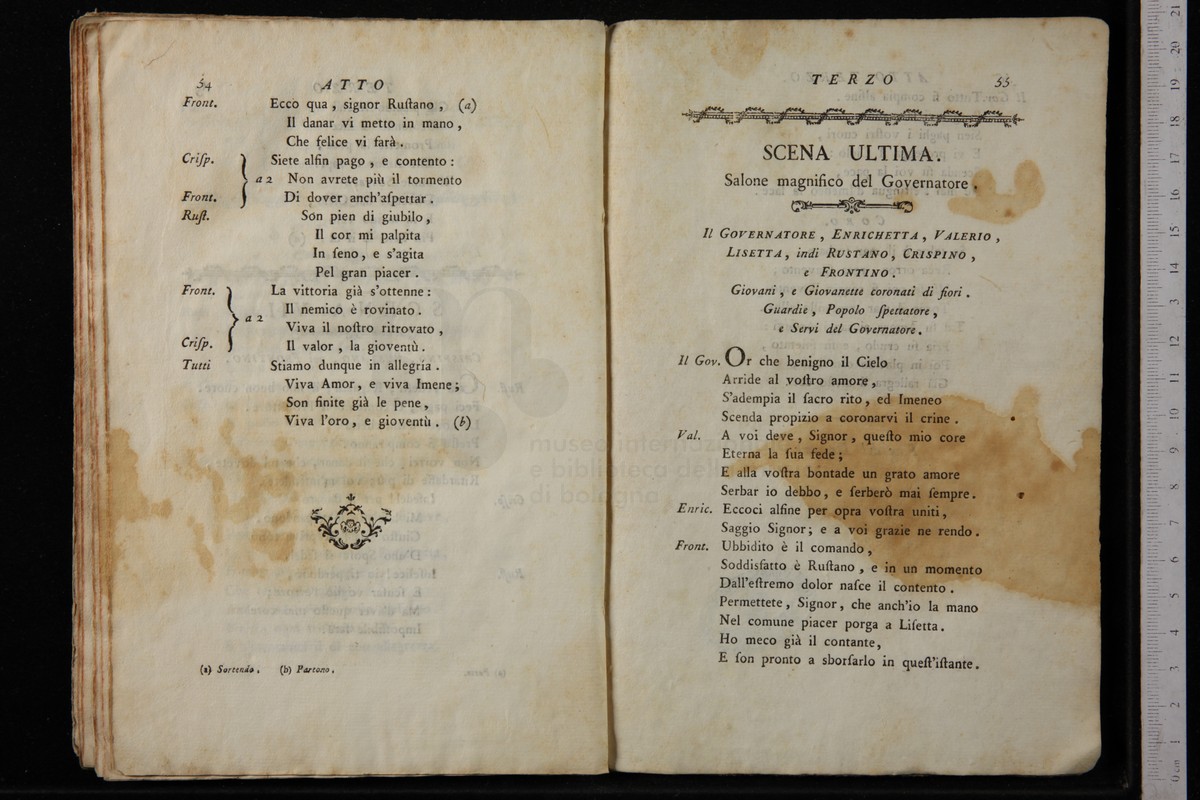 54
ATTO
Front. Ecco qua, signor Ruſtano, (a)
Il danar vi metto in mano,
Che felice vi farà.
Criſp. Siete alfin pago, e contento:
a 2 Non avrete più il tormento
Front. Di dover anch'aſpettar.
Ruſt. Son pien di giubilo,
Il cor mi palpita
In ſeno, e s'agita
Pel gran piacer.
Front. La vittoria già s'ottenne:
Il nemico è rovinato.
a 2
Viva il noſtro ritrovato,
Criſp. Il valor, la gioventù.
Tutti Stiamo dunque in allegria.
Viva Amor, e viva Imene;
Son finite già le pene,
Viva l'oro, e gioventù. (b)
(a) Sortendo. (b) Partono.
TERZO
55
SCENA ULTIMA.
Salone magnifico del Governatore.
Il GOVERNATORE, ENRICHETTA, VALERIO,
LISETTA, indi RUSTANO, CRISPINO,
e FRONTINO.
Giovani, e Giovanette coronati di fiori.
Guardie, Popolo ſpettatore,
e Servi del Governatore.
Il Gov. Or che benigno il Cielo
Arride al voſtro amore,
S'adempia il ſacro rito, ed Imeneo
Scenda propizio a coronarvi il crine.
Val. A voi deve, Signor, queſto mio core
Eterna la ſua fede;
E alla voſtra bontade un grato amore
Serbar io debbo, e ſerberò mai ſempre.
Enric. Eccoci alfine per opra voſtra uniti,
Saggio Signor; e a voi grazie ne rendo.
Front. Ubbidito è il comando,
Soddisfatto è Ruſtano, e in un momento
Dall'eſtremo dolor naſce il contento.
Permettete, Signor, che anch'io la mano
Nel comune piacer porga a Liſetta.
Ho meco già il contante,
E ſon pronto a sborſarlo in queſt'iſtante.
museo internazionale
e biblioteca della
di bologna